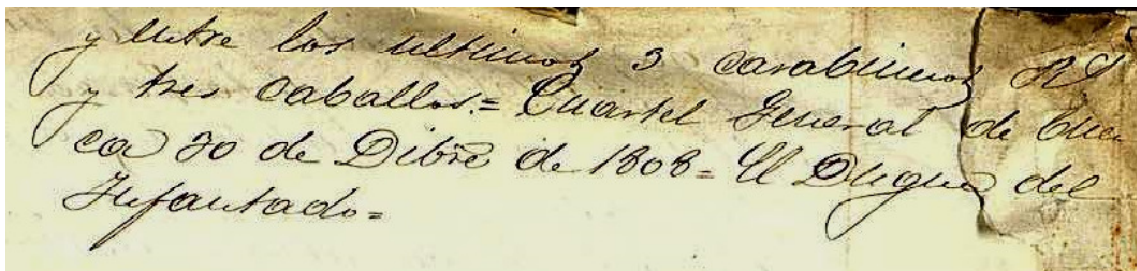 y entre los ultimos 3 carabineros Rs
y tres caballos.= Cuartel General de Cuen
ca 30 de Dibre de 1808= El Duque del
Infantado=